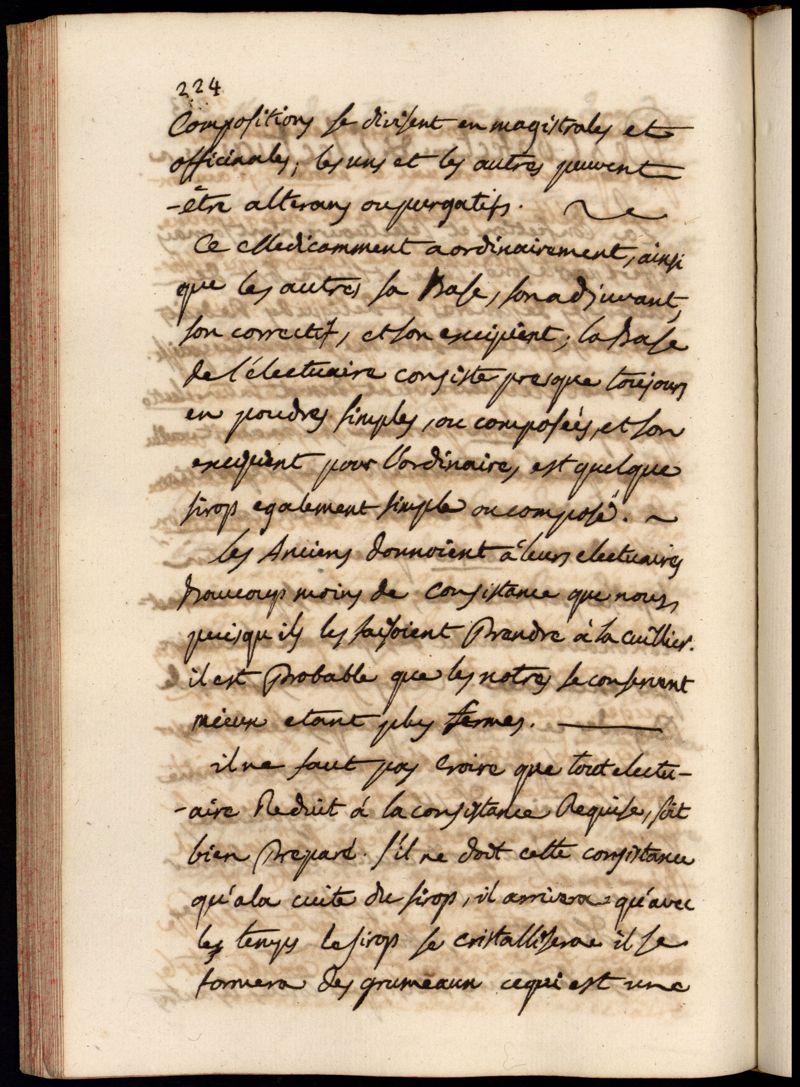 224
Compositions se divisent en magistrales et
officinales, les uns et les autres peuvent
-être alterans ou purgatifs.
Ce Medicamment a ordinairement, ainsi
que les autres sa Base, son adjuvant,
son correctif, et son excipient; la Base
de l'électuaire consiste presque toujours
en poudres simples, ou composées, et son
excipient pour l'ordinaire, est quelque
sirop egalement simple ou composé.
les Anciens donnoient à leurs electuaires
Beaucoup moins de consistance que nous,
puisqu'ils les faisoient Prendre à la cuillier.
il est Probable que les notres se conservent
mieux etant plus fermes.
il ne faut pas croire que tout electu-
-aire Reduit à la consistance Requise, soit
bien Preparé. s'il ne doit cette consistance
qu'a la cuite du sirop, il arrivera qu'avec
les temps le sirop se cristallisera il se
formera des grumeaux ce qui est une